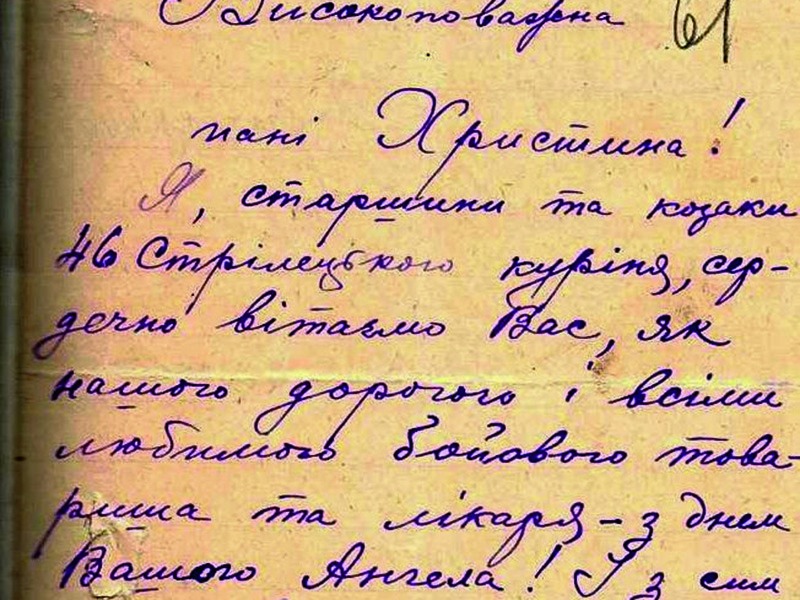 Високоповажна 61
пані Христина!
Я, старшини та козаки
46 Стрілецького куріня, сер-
дечно вітаємо Вас, як
нашого дорогого і всіми
любимого бойового това-
риша та лікаря - з днем
Вашого Ангела! І з сим